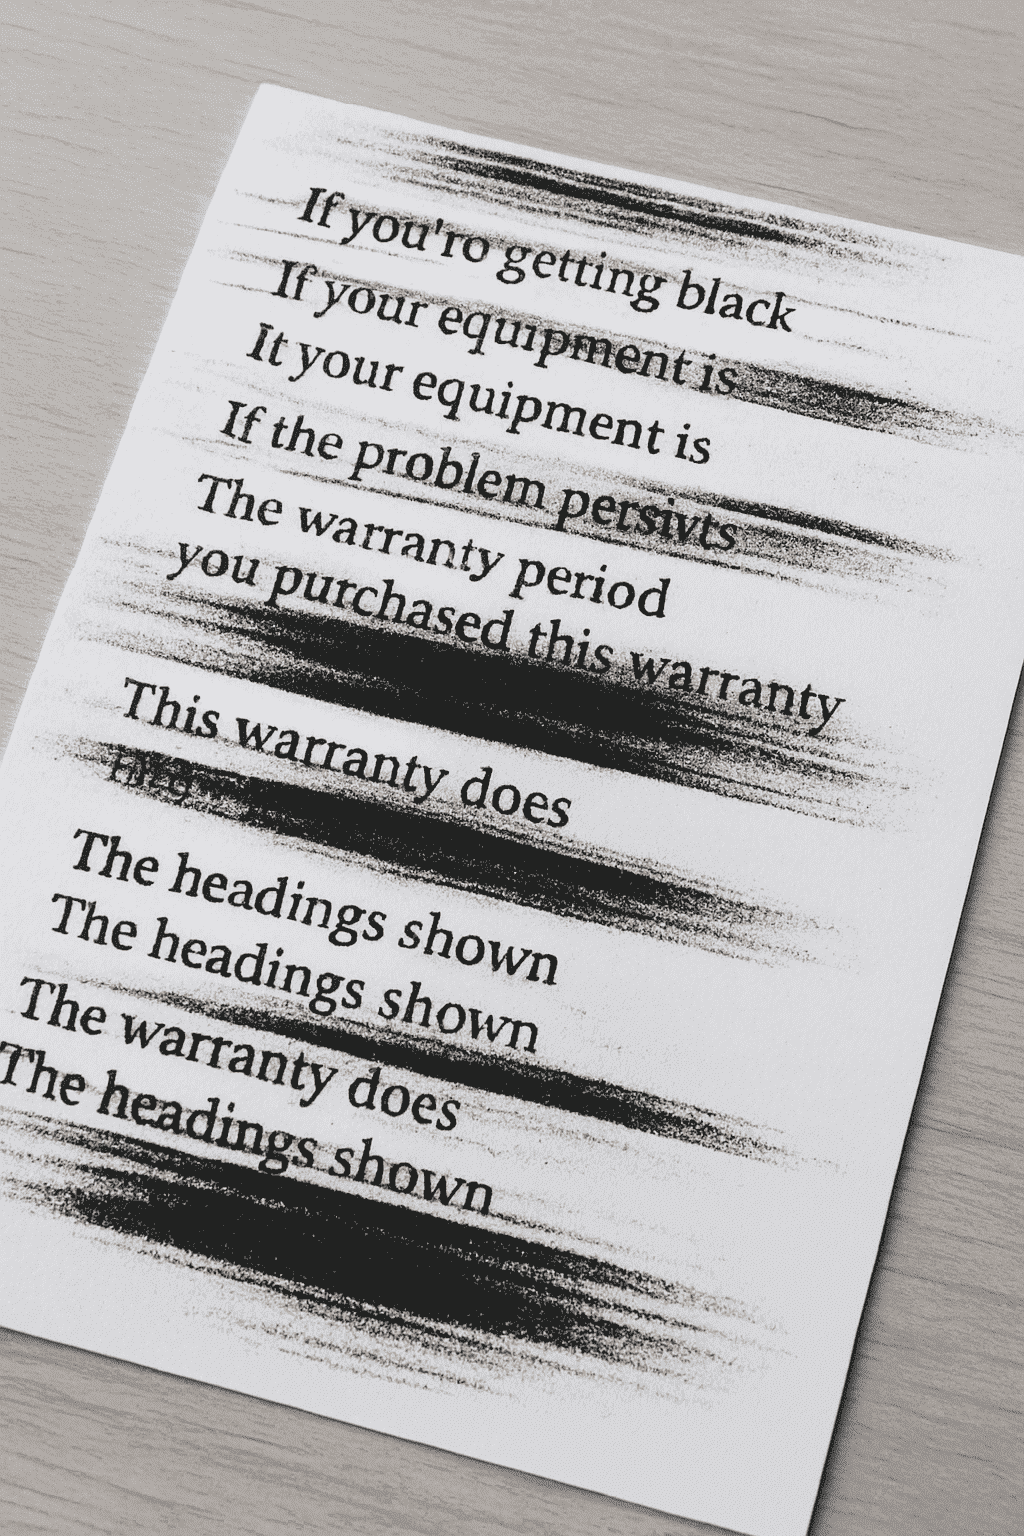 If you'ro getting black
If your equipment is
It your equipment is
If the problem persivts
The warranty period
you purchased this warranty
This warranty does
The headings shown
The headings shown
The warranty does
The headings shown